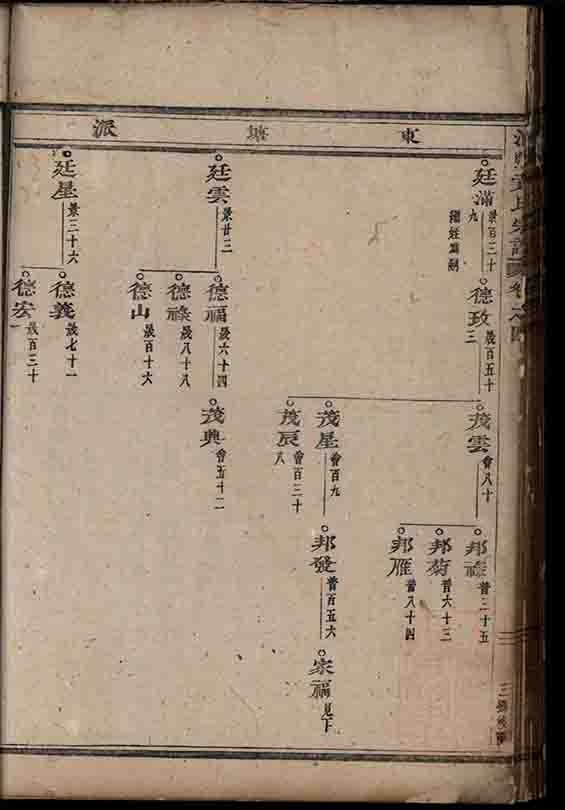 東塘派
廷滿
景百三十九
德玫
晟百五十三
茂雲
會八十
邦祿
普二十五
邦菊
普六十三
邦雁
普八十四
茂星
會百九
邦發
普百五六
家福
見下
茂辰
會百三十八
廷雲
景廿三
德福
晟六十四
茂興
會五十二
德祿
晟八十八
德山
晟百十六
廷星
景三十六
德義
晟七十一
德宏
晟百三十一